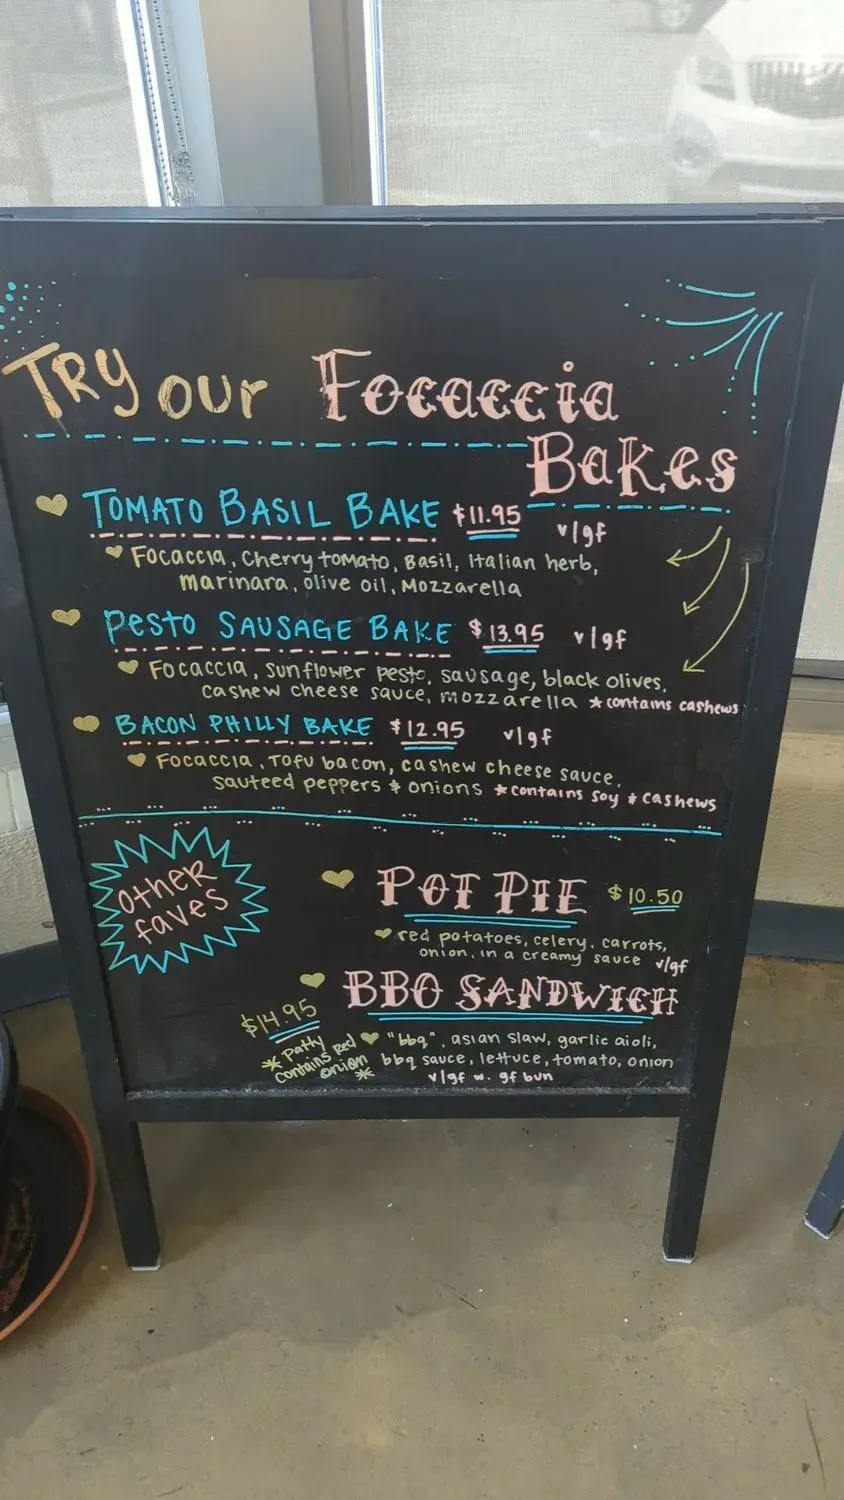 TRY our Focaccia
Bakes
TOMATO BASIL BAKE $11.95 v/gf
Focaccia, Cherry tomato, Basil, Italian herb,
marinara, olive oil, Mozzarella
Pesto SAUSAGE BAKE $13.95 v/gf
Focaccia, sunflower pesto, sausage, black olives,
cashew cheese sauce, mozzarella *contains cashews
BACON PHILLY BAKE $12.95 v/gf
Focaccia, Tofu bacon, cashew cheese sauce,
sauteed peppers & onions *contains soy & cashews
other
faves
POT PIE $10.50
red potatoes, celery, carrots,
onion, in a creamy sauce v/gf
BBQ SANDWICH
$14.95
"bbq", asian slaw, garlic aioli,
bbq sauce, lettuce, tomato, onion
v/gf w. gf bun
* Patty
contains red
onion *